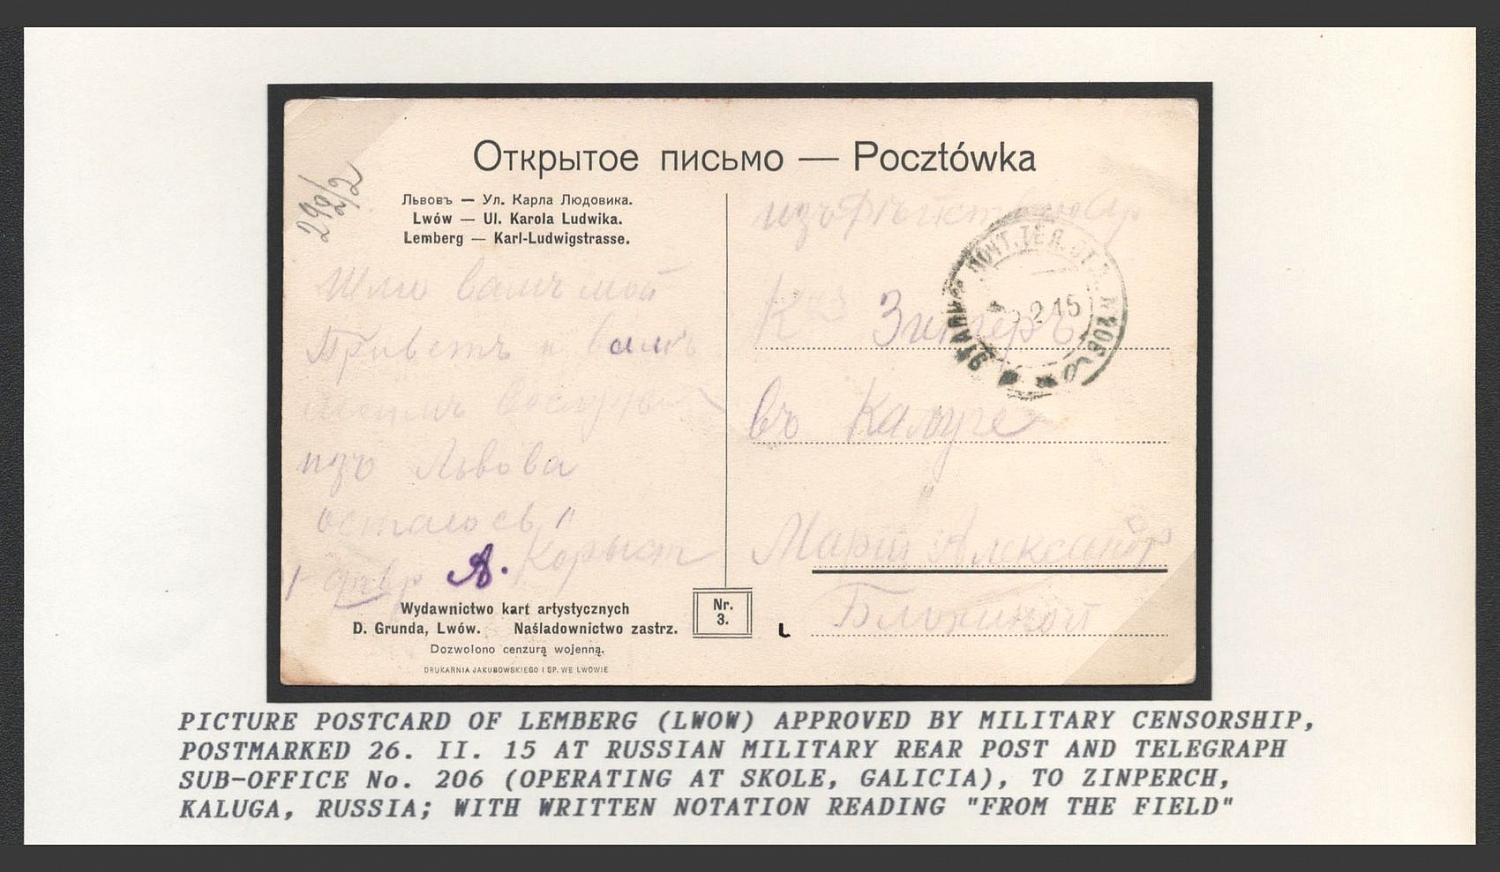 Открытое письмо — Pocztówka
292/2
Львовъ — Ул. Карла Людовика.
Lwów — Ul. Karola Ludwika.
Lemberg — Karl-Ludwigstrasse.
Шлю вамъ мой
Привѣтъ и вамъ
изъ Львова
осталось
А.
изъ
ПОЧТ. ТЕЛ. ОТД. N 206
2 15
Зинперъ
въ Калуге
Марiи Александр
Wydawnictwo kart artystycznych
D. Grunda, Lwów. Naśladownictwo zastrz.
Dozwolono cenzurą wojenną.
DRUKARNIA JAKUBOWSKIEGO I SP. WE LWOWIE
Nr.
3.
PICTURE POSTCARD OF LEMBERG (LWOW) APPROVED BY MILITARY CENSORSHIP,
POSTMARKED 26. II. 15 AT RUSSIAN MILITARY REAR POST AND TELEGRAPH
SUB-OFFICE No. 206 (OPERATING AT SKOLE, GALICIA), TO ZINPERCH,
KALUGA, RUSSIA; WITH WRITTEN NOTATION READING "FROM THE FIELD"